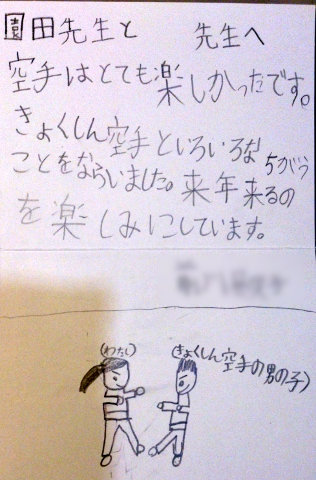 園田先生と　　先生へ
空手はとても楽しかったです。
きょくしん空手といろいろなちがう
ことをならいました。来年来るの
を楽しみにしています。
(わたし)
(きょくしん空手の男の子)